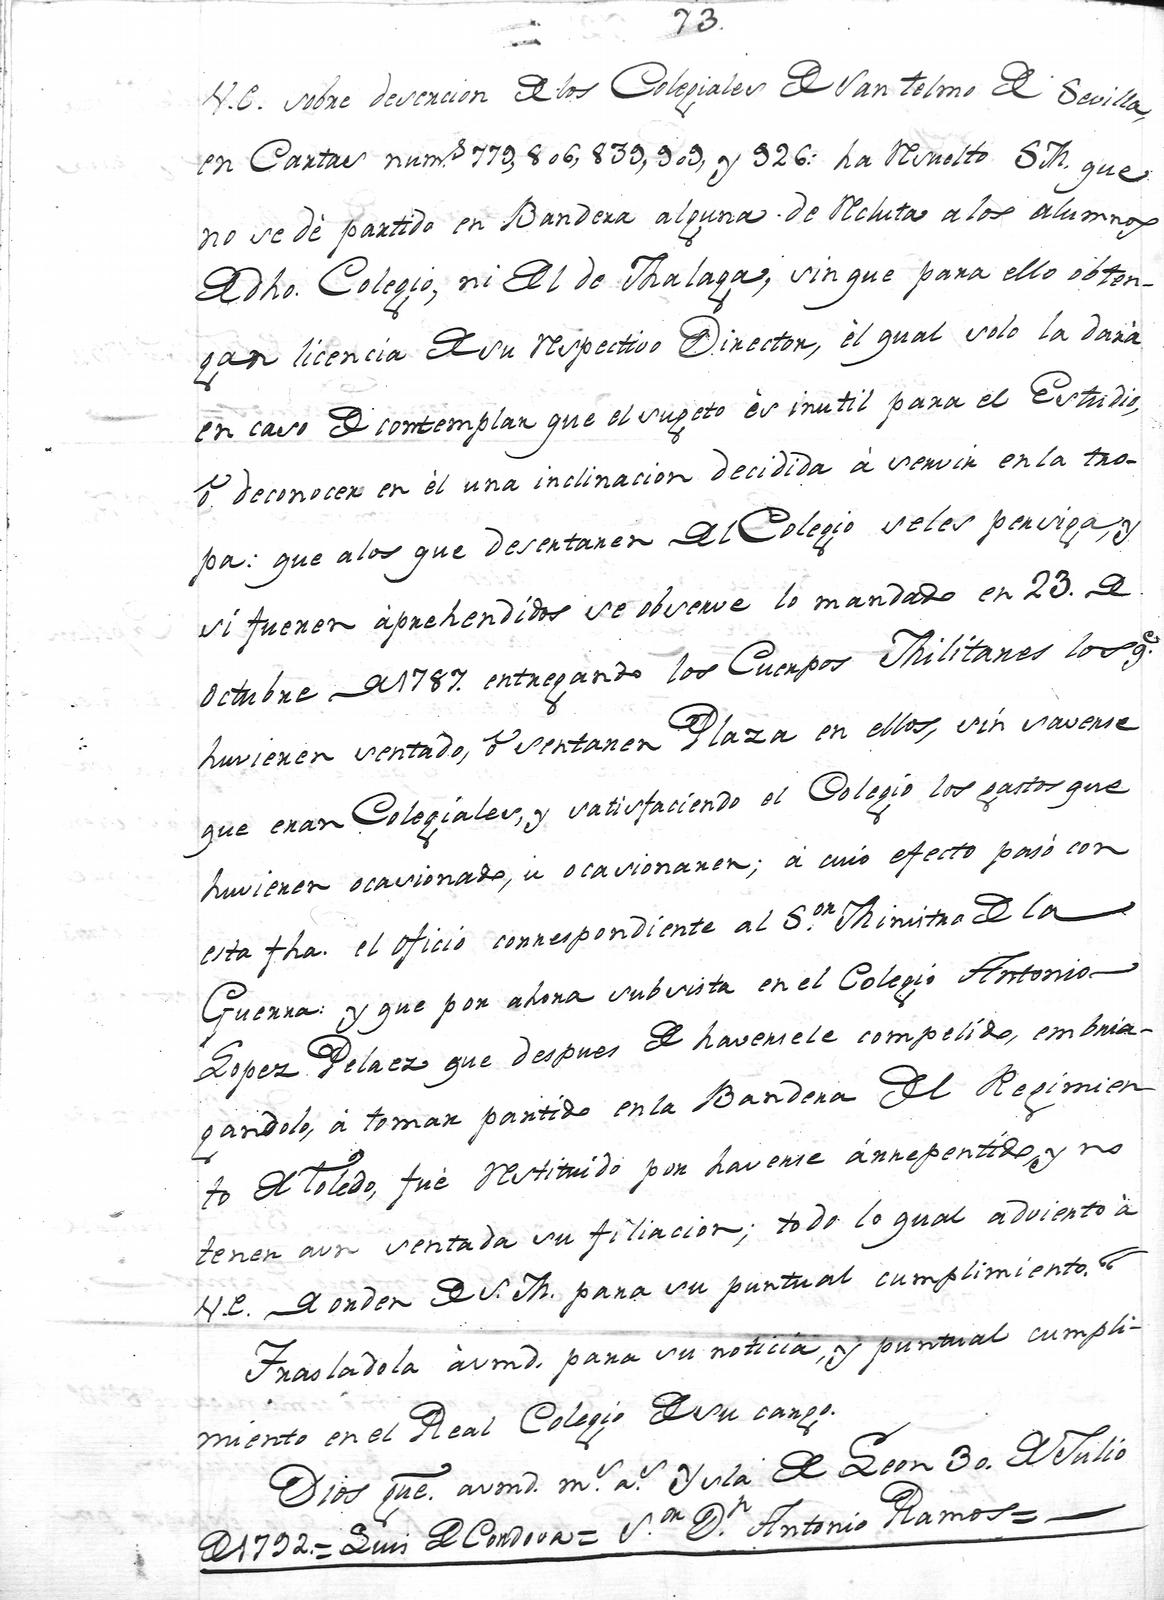 73.
V.E. sobre desercion de los Colegiales de San telmo de Sevilla,
en Cartas num.s 779, 806, 839, 909, y 926: ha resuelto S.M. que
no se dè partido en Bandera alguna de recluta a los alumnos
de dho. Colegio, ni del de Malaga, sin que para ello obten-
gan licencia de su respectivo Director, èl qual solo la dara
en caso de contemplar que el sugeto ès inutil para el Estudio,
ò deconocer en èl una inclinacion decidida à servir en la tro-
pa: que alos que desertaren del Colegio seles persiga, y
si fueren àprehendidos se observe lo mandado en 23. de
Octubre de 1787. entregando los Cuerpos Militares los q.e
huvieren sentado, ò sentaren Plaza en ellos, sin saverse
que eran Colegiales, y satisfaciendo el Colegio los gastos que
huvieren ocasionado, ù ocasionaren; à cuio efecto pasò con
esta fha. el oficio correspondiente al S.or Ministro de la
Guerra: y que por ahora subsista en el Colegio Antonio
Lopez Pelaez que despues de haversele compelido, embria-
gandolo, à tomar partido en la Bandera del Regimien
to de Toledo, fuè restituido por haverse àrrepentido, y no
tener aun sentada su filiacion; todo lo qual advierto à
V.E. de orden de S.M. para su puntual cumplimiento.
Trasladola àvmd. para su noticia, y puntual cumpli-
miento en el Real Colegio de su cargo.
Dios gue. avmd. m.s a.s Ysla de Leon 30. de Julio
de 1792.= Luis de Cordova= S.or D.n Antonio Ramos=